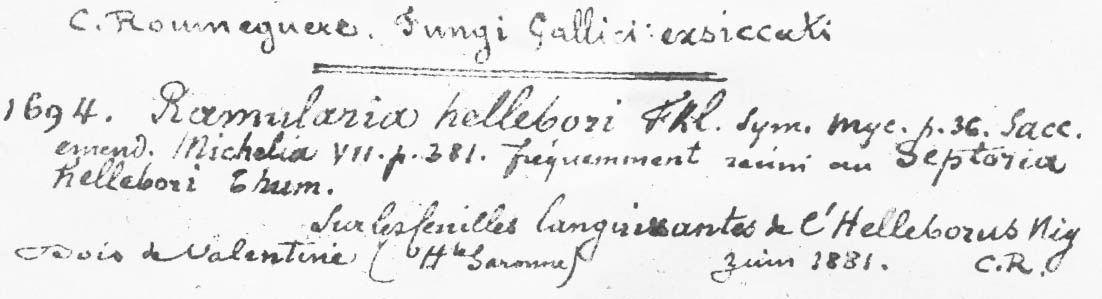 C. Roumeguere. Fungi Gallici exsiccati
1694. Ramularia hellebori Fkl. Sym. myc. p. 36. Sacc.
emend. Michelia VII. p. 381. fréquemment réuni au Septoria
hellebori Thum.
Sur les feuilles languissantes de l'Helleborus Nig
Bois de Valentine (Hte Garonne) Juin 1881. C.R.